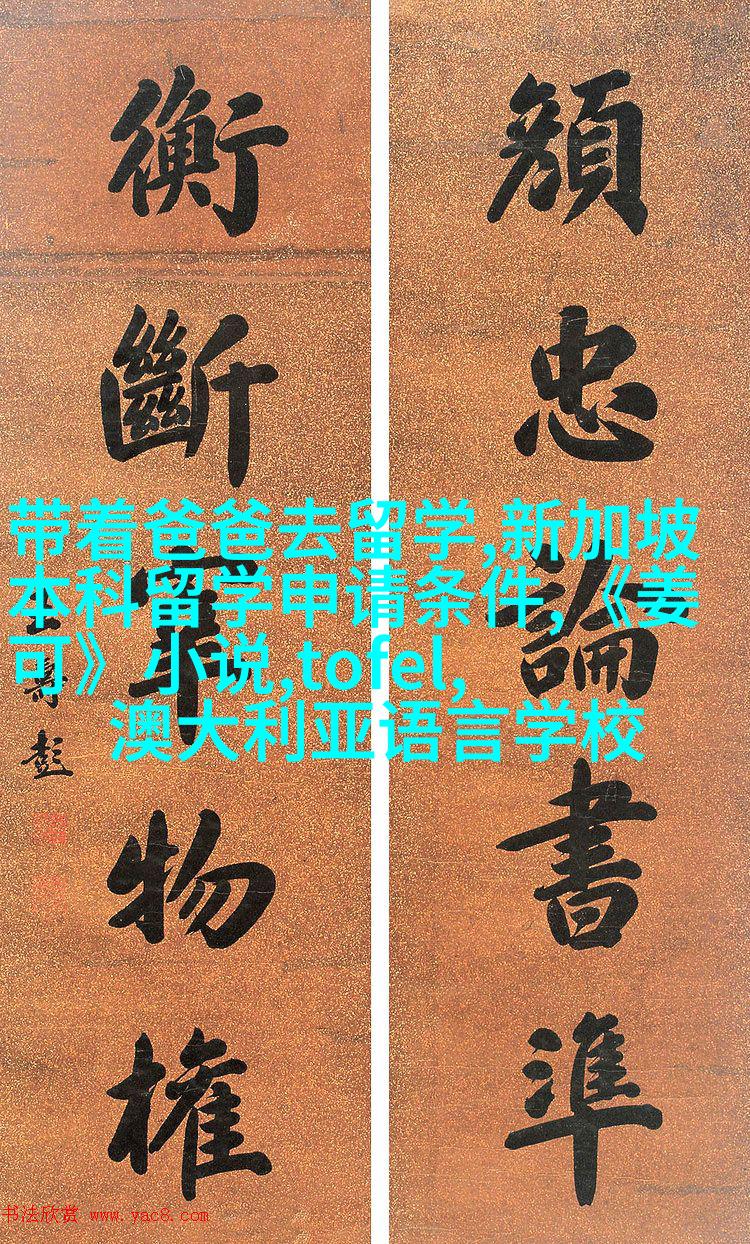 忠論書準
衡斷宰物權
壽彭
带着爸爸去留学,新加坡
本科留学申请条件,《姜
可》小说,tofel,
澳大利亚语言学校
书法欣赏 www.yac8.com